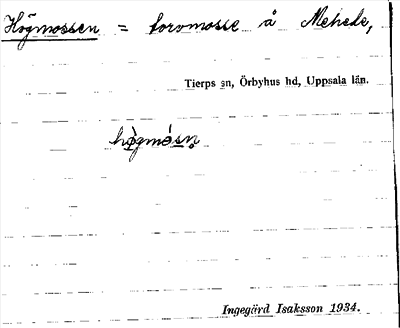 Högmossen = torvmosse å Mehede,
Tierps sn, Örbyhus hd, Uppsala län.
hǿgmósn̥
Ingegärd Isaksson 1934.